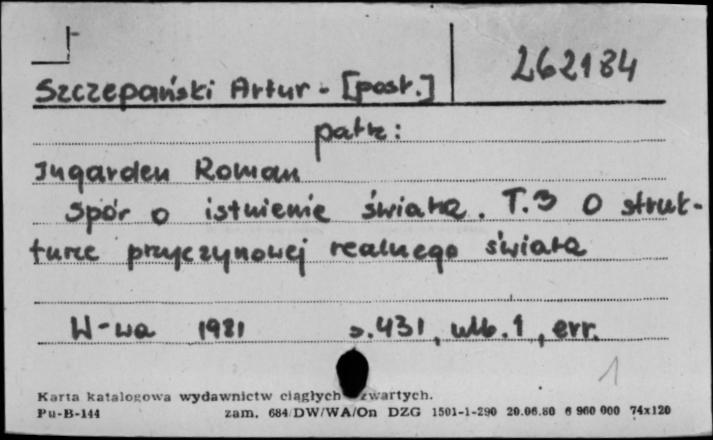 262184
Szczepański Artur - [post.]
patrz:
Ingarden Roman
Spór o istnienie świata. T.3 O struk-
turze przyczynowej realnego świata
W-wa 1981 s.431, ulb.1, err.
1
Karta katalogowa wydawnictw ciągłych zwartych.
Pu-B-144 zam. 684/DW/WA/On DZG 1501-1-290 20.06.80 6 960 000 74x120